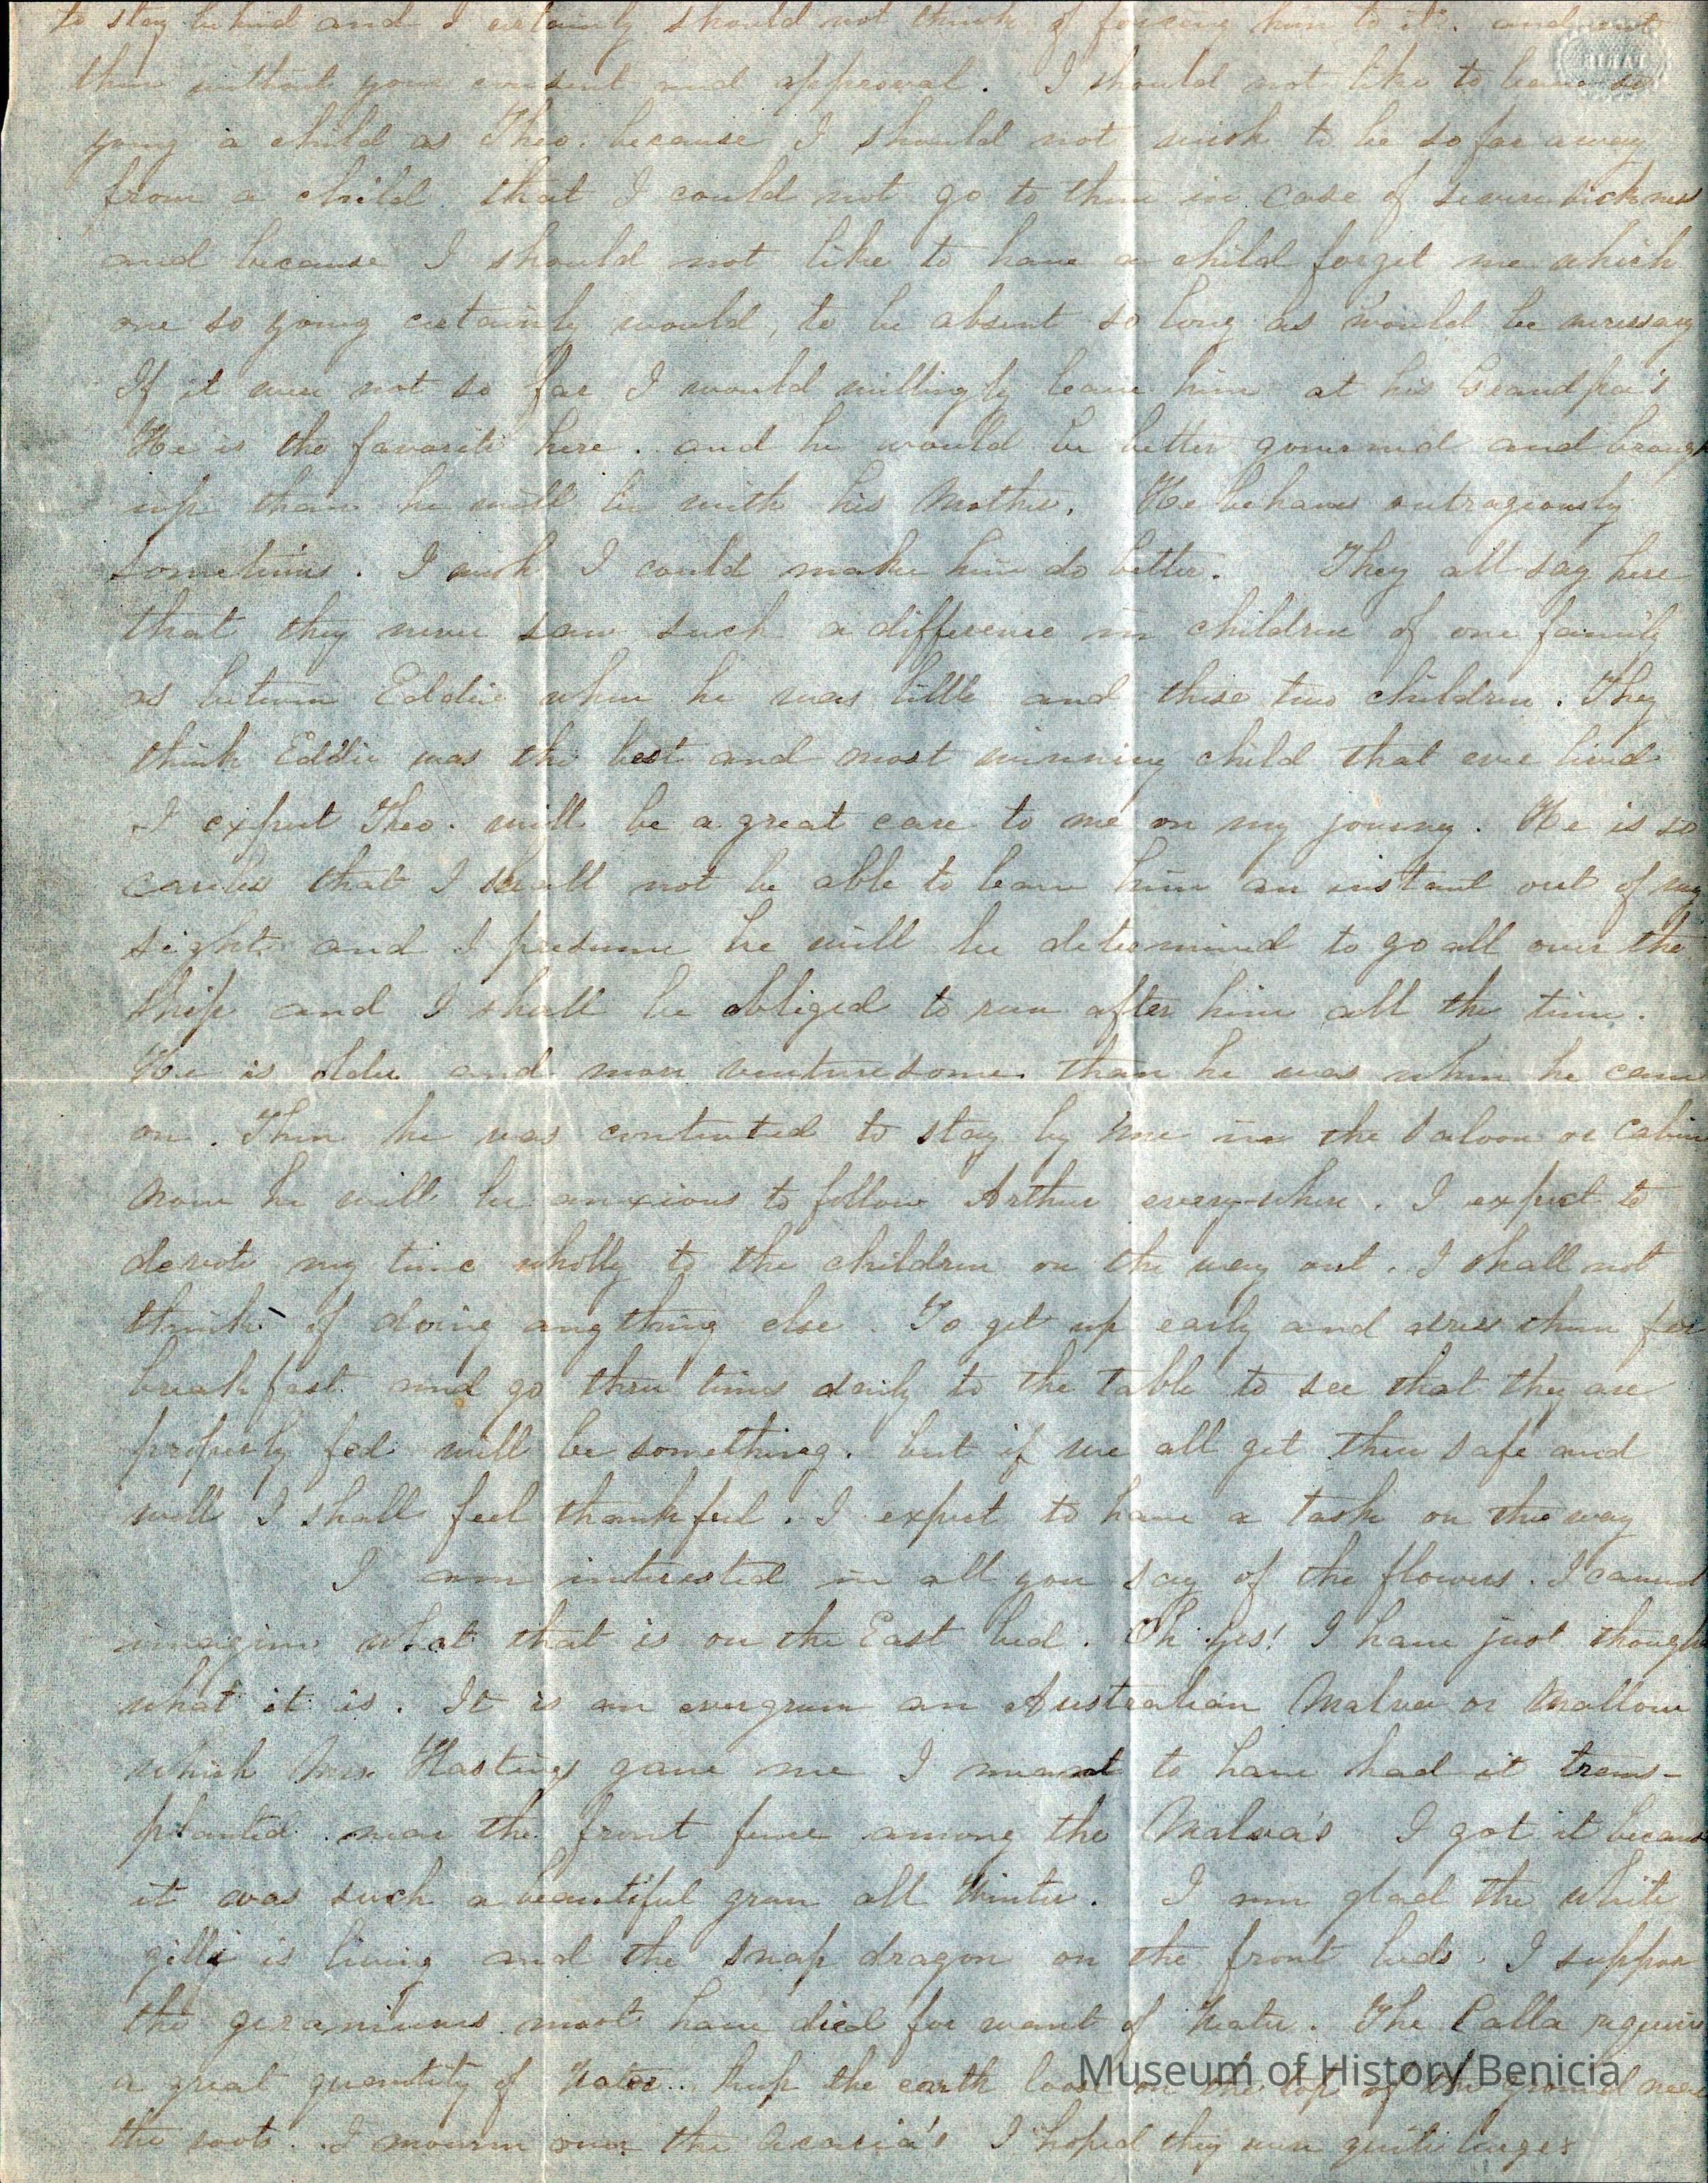 to stay behind and I certainly should not think of forcing him to it. and not
then without your consent and approval. I should not like to leave so
young a child as Theo. because I should not wish to be so far away
from a child that I could not go to them in case of severe sickness
and because I should not like to have a child forget me which
one so young certainly would, to be absent so long as would be necessary
If it were not so far I would willingly leave him at his Grandpa's
He is the favorite here. and he would be better governed and brough
up than he will be with his Mother. He behaves outrageously
sometimes. I wish I could make him do better. They all say here
that they never saw such a difference in children of one family
as between Eddie when he was little and these two children. They
think Eddie was the best and most winning child that ever lived
I expect Theo. will be a great care to me on my journey. He is so
careless that I shall not be able to leave him an instant out of my
sight and I presume he will be determined to go all over the
ship and I shall be obliged to run after him all the time.
He is older and more venturesome than he was when he came
on. Then he was contented to stay by me in the Saloon or Cabin
now he will be anxious to follow Arthur every-where. I expect to
devote my time wholly to the children on the way out. I shall not
think of doing any thing else. To get up early and dress them for
breakfast and go three times daily to the table to see that they are
properly fed will be something. but if we all get thru safe and
well I shall feel thankful. I expect to have a task on the way
I am interested in all you say of the flowers. I cannot
imagine what that is on the East bed. Oh yes! I have just thought
what it is. It is an evergreen an Australian Malva or Mallow
which Mrs. Hastings gave me I meant to have had it trans-
planted near the front fence among the Malva's I got it because
it was such a beautiful green all Winter. I am glad the white
gilli is living and the snap dragon on the front beds. I suppose
the geraniums must have died for want of water. The Calla requires
a great quantity of water. Keep the earth loose on the top of the ground near
the roots. I mourn over the Acacia's I hoped they were quite large
Museum of History Benicia